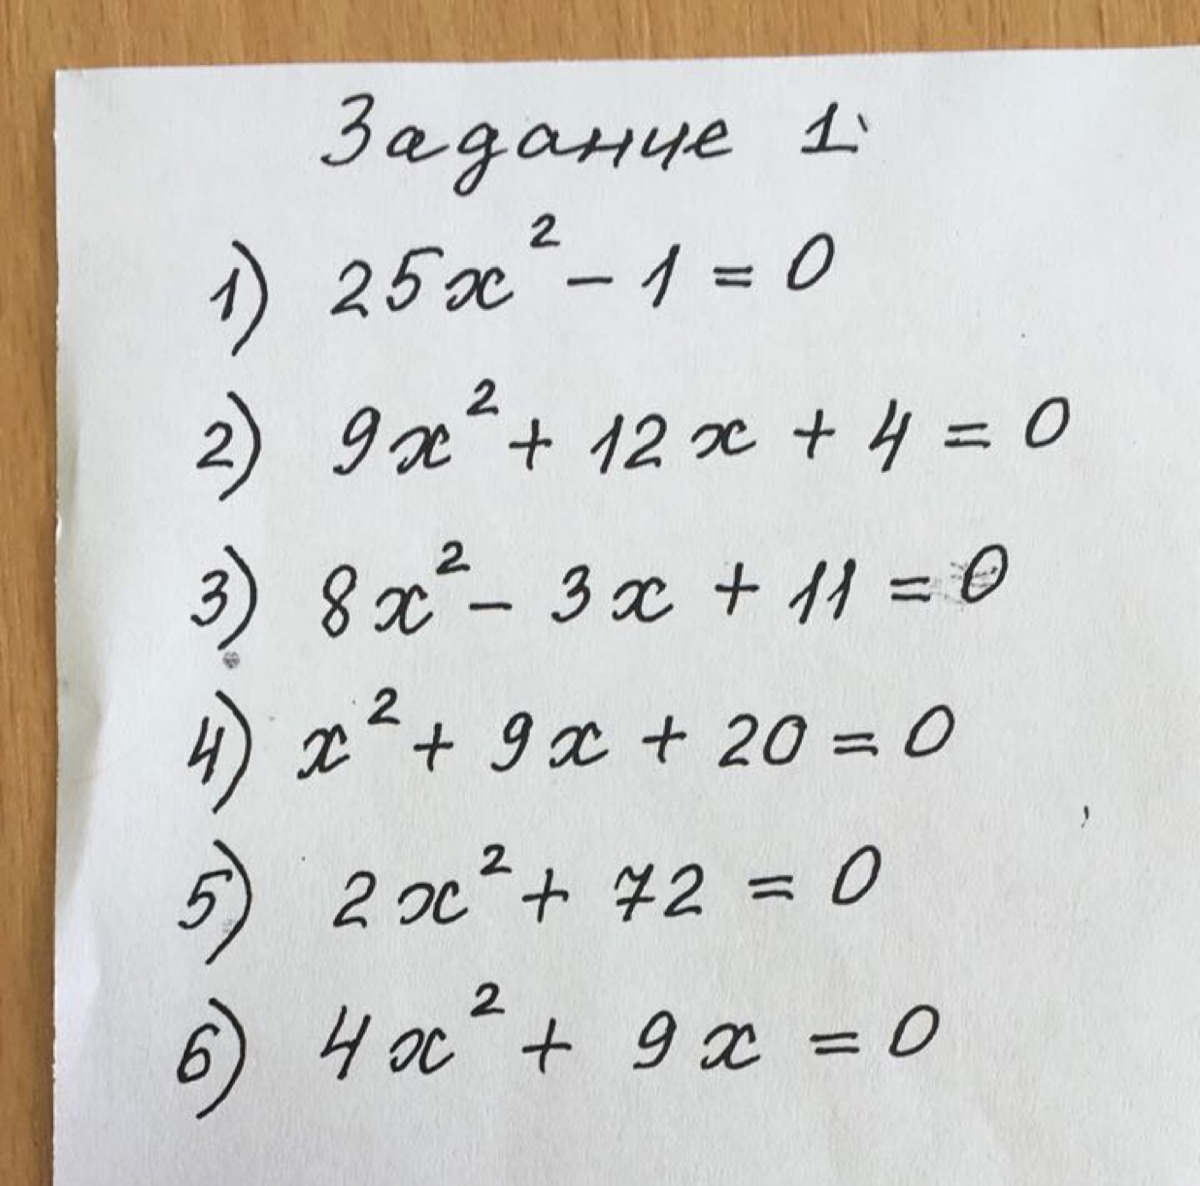 Задание 1.
1) 25x² - 1 = 0
2) 9x² + 12x + 4 = 0
3) 8x² - 3x + 11 = 0
4) x² + 9x + 20 = 0
5) 2x² + 72 = 0
6) 4x² + 9x = 0